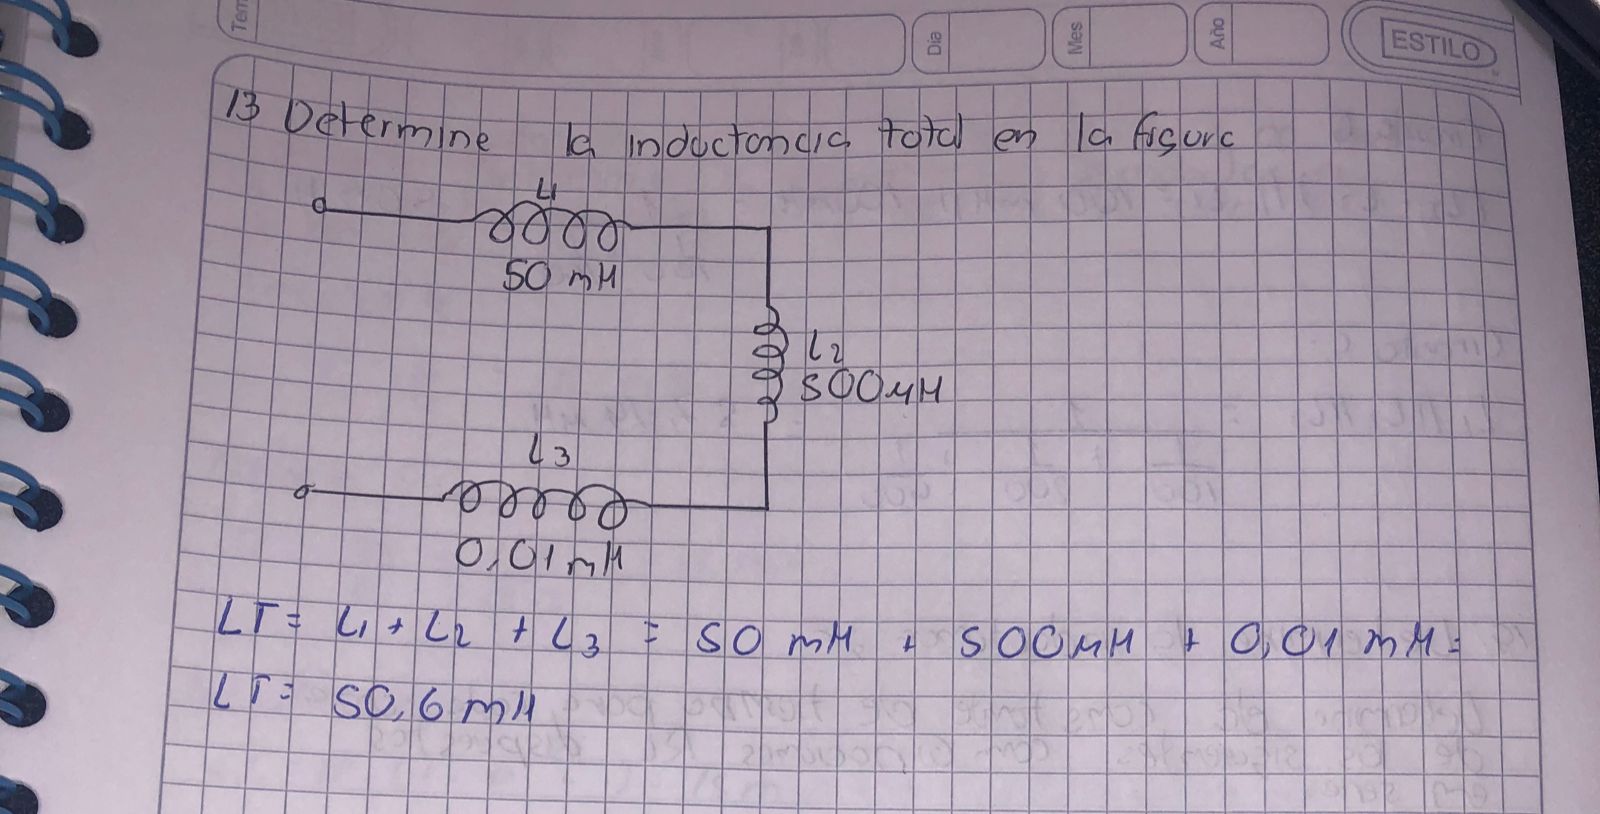 Tem
Dia
Mes
Año
ESTILO
13 Determine la inductancia total en la figura
L1
50 mH
L2
500μH
L3
0,01 mH
LT= L1 + L2 + L3 = 50 mH + 500μH + 0,01 mH =
LT= 50,6 mH